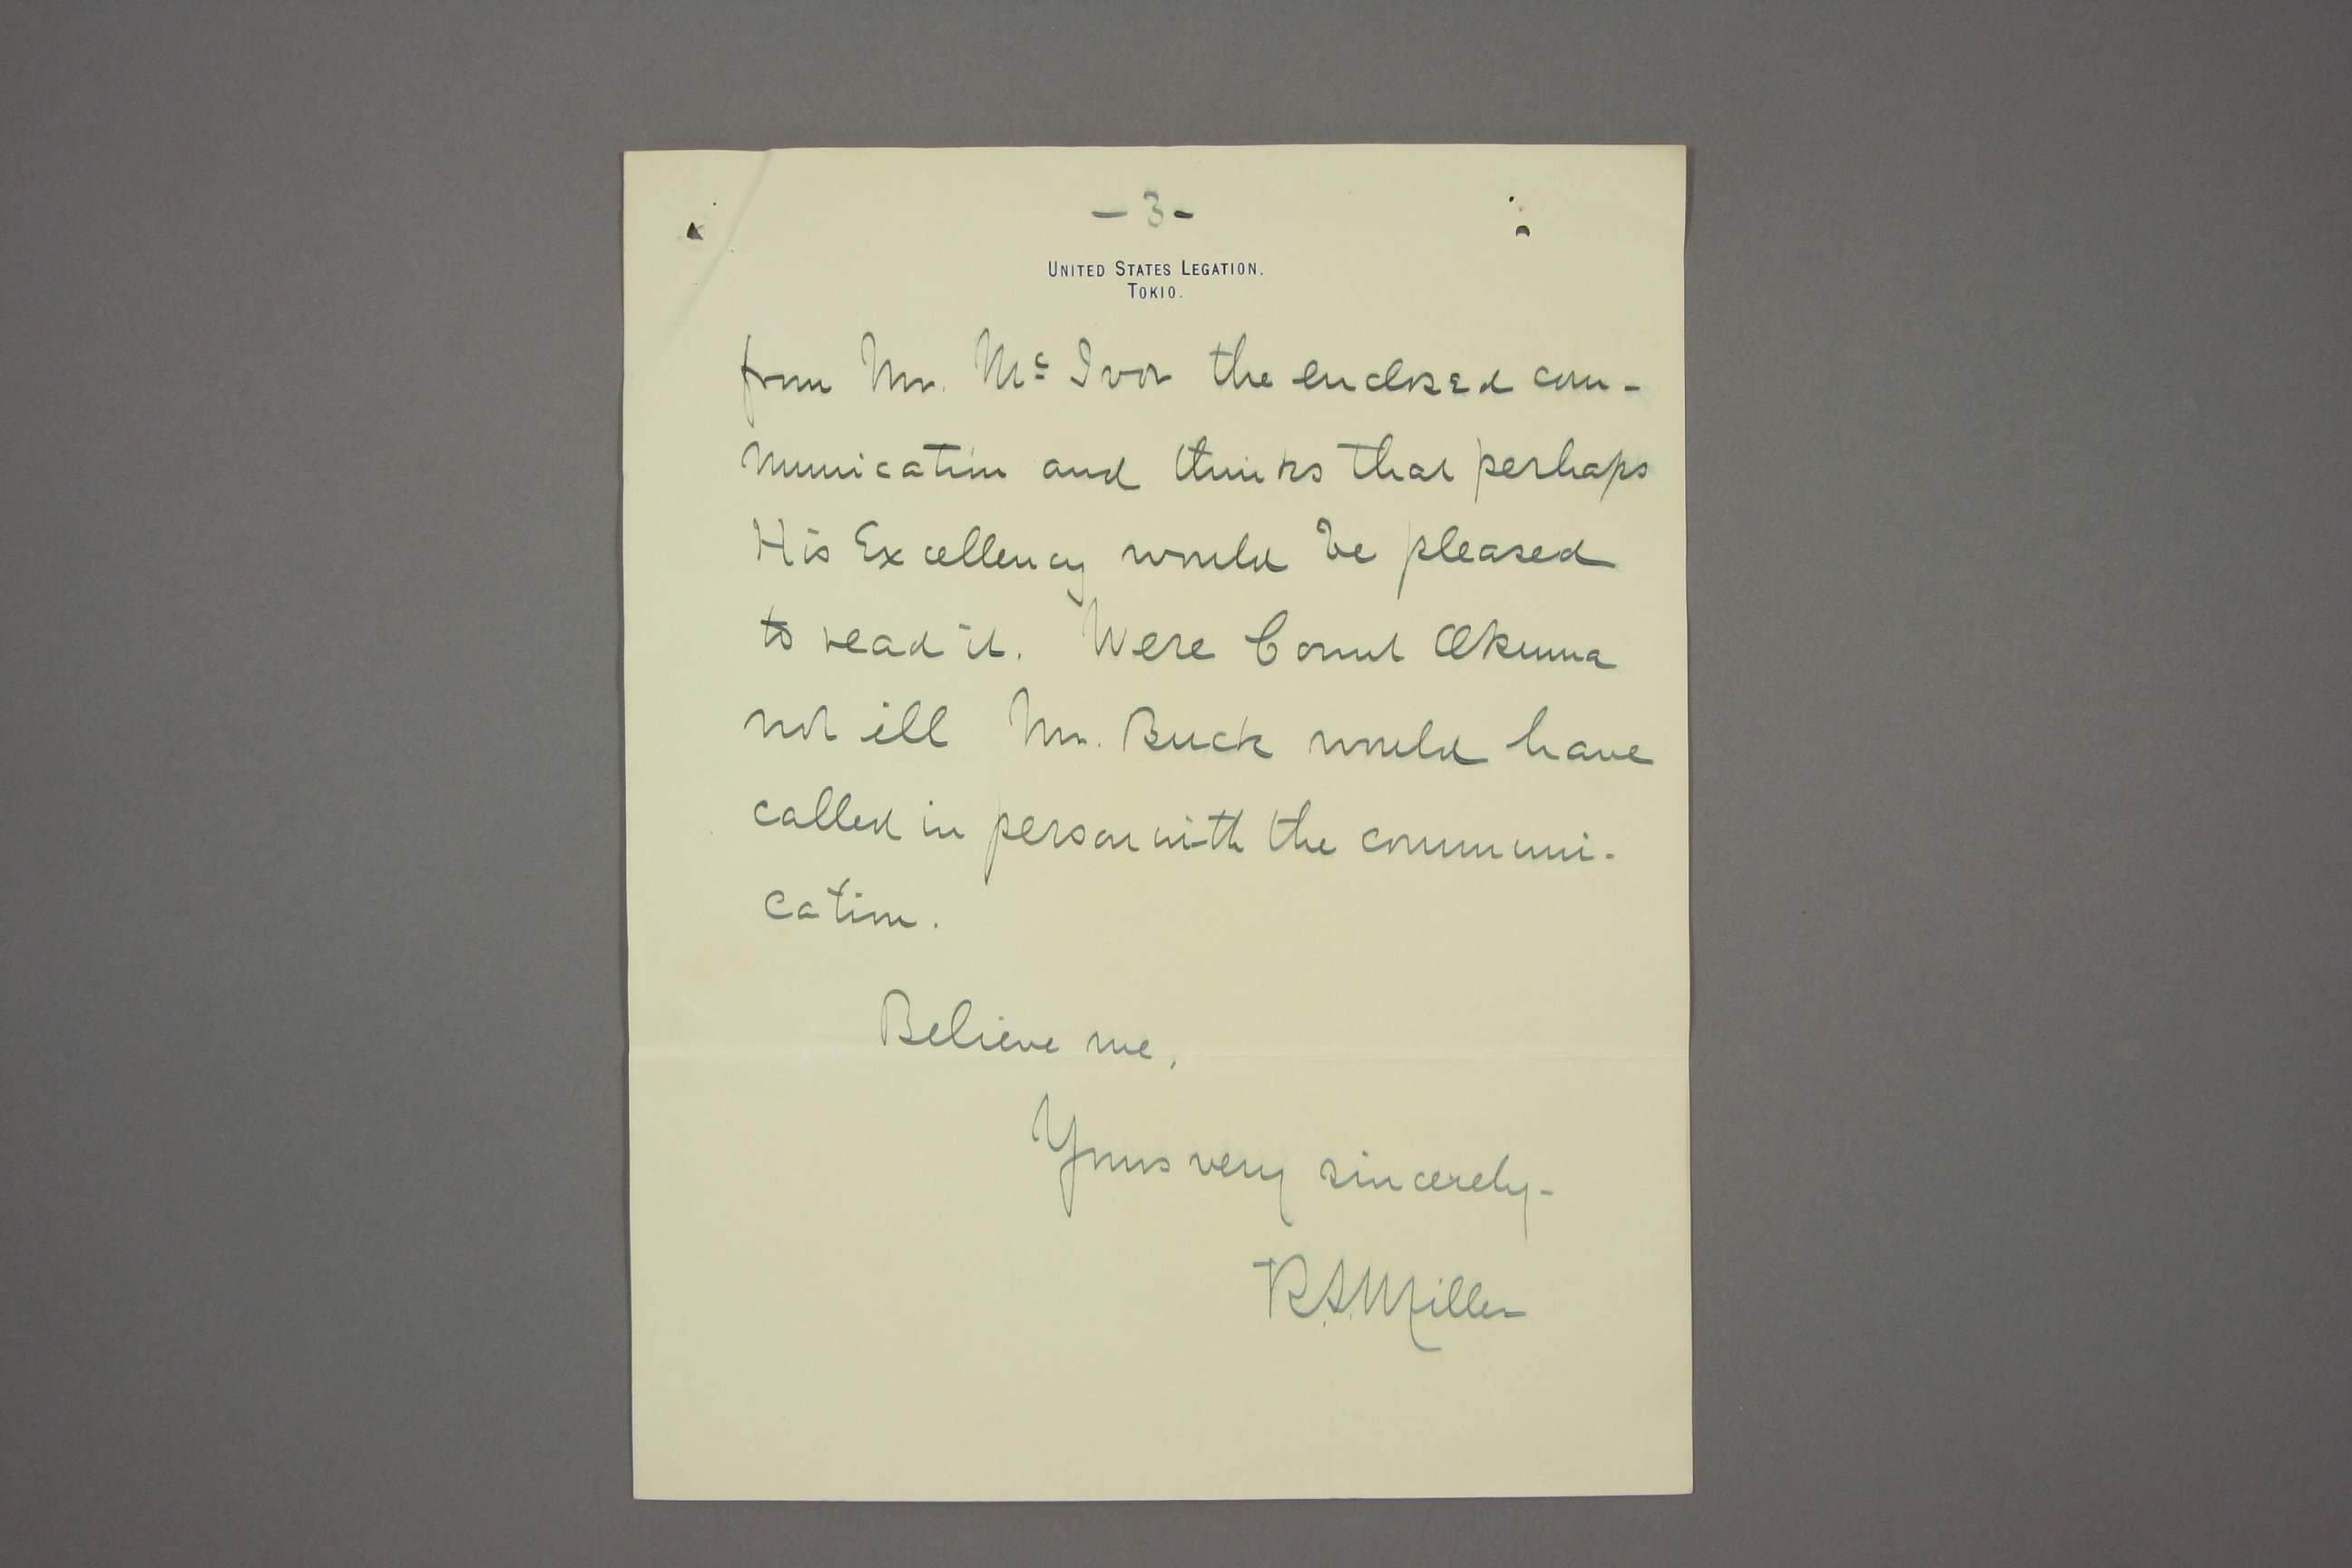 - 3 -
UNITED STATES LEGATION.
TOKIO.
from Mr. Mc Ivor the enclosed com-
munication and thinks that perhaps
His Excellency would be pleased
to read it. Were Count Okuma
not ill Mr. Buck would have
called in person with the communi-
cation.
Believe me,
Yours very sincerely-
R.S. Miller